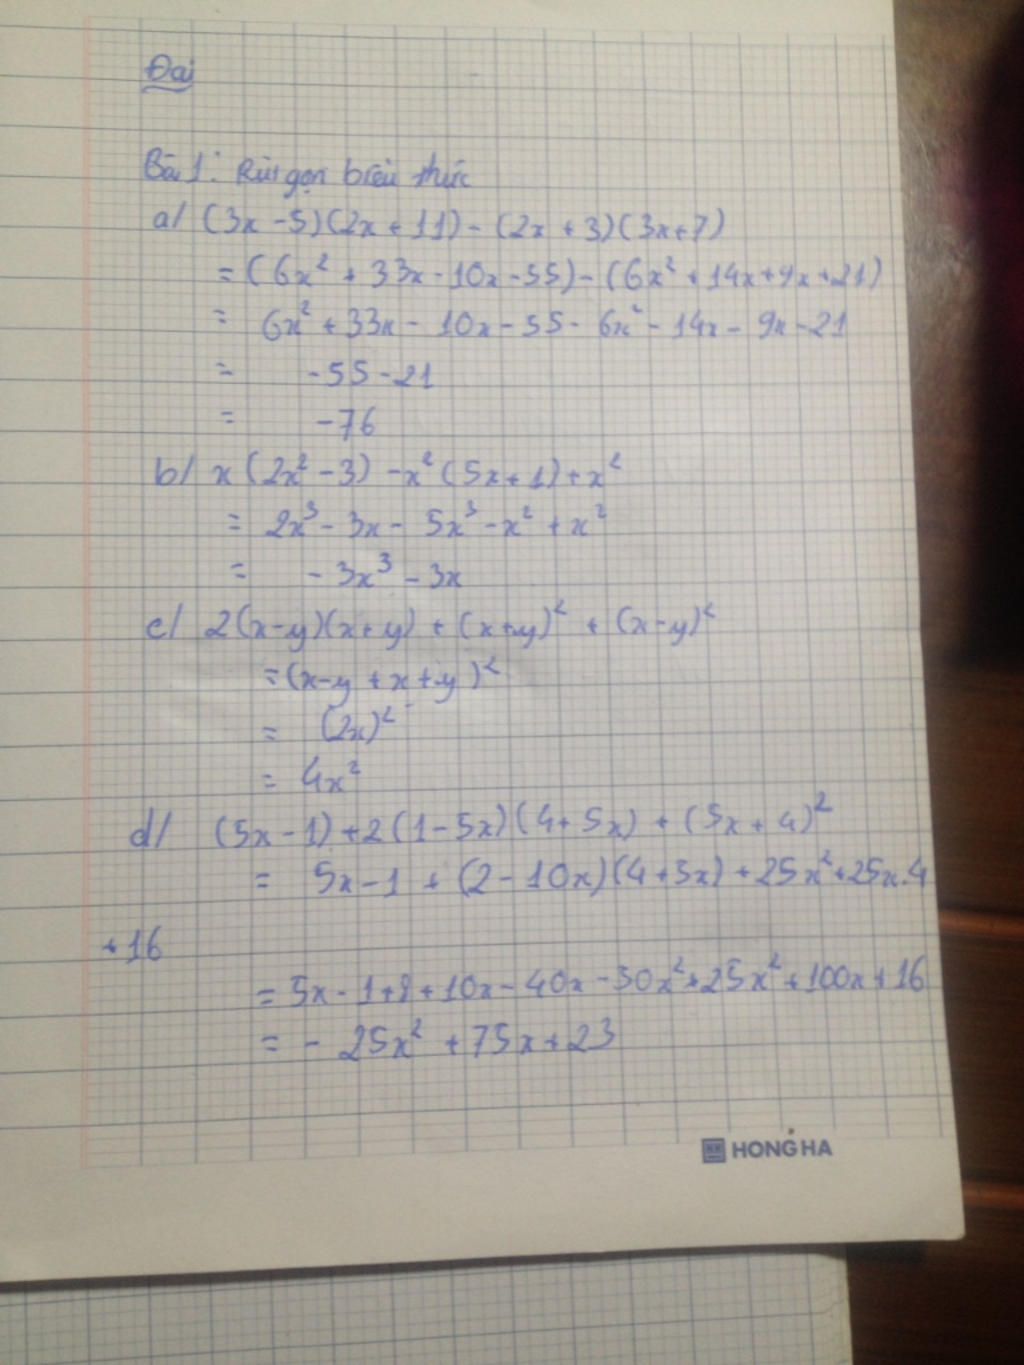 Đại
Bài 1: Rút gọn biểu thức
a/ (3x - 5)(2x + 11) - (2x + 3)(3x + 7)
= (6x² + 33x - 10x - 55) - (6x² + 14x + 9x + 21)
= 6x² + 33x - 10x - 55 - 6x² - 14x - 9x - 21
= -55 - 21
= -76
b/ x(2x² - 3) - x²(5x + 1) + x²
= 2x³ - 3x - 5x³ - x² + x²
= - 3x³ - 3x
c/ 2(x-y)(x+y) + (x+y)² + (x-y)²
= (x-y + x+y)²
= (2x)²
= 4x²
d/ (5x - 1) + 2(1 - 5x)(4 + 5x) + (5x + 4)²
= 5x - 1 + (2 - 10x)(4 + 5x) + 25x² + 25x.4
+ 16
= 5x - 1 + 8 + 10x - 40x - 50x² + 25x² + 100x + 16
= - 25x² + 75x + 23
HONG HA